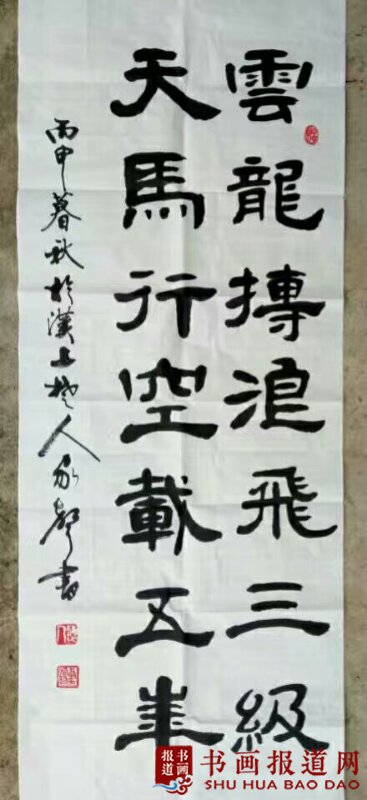 雲龍搏浪飛三級
天馬行空載五年
丙申暮秋於漢上楚人家書
书画报道
书画报道网
SHU HUA BAO DAO